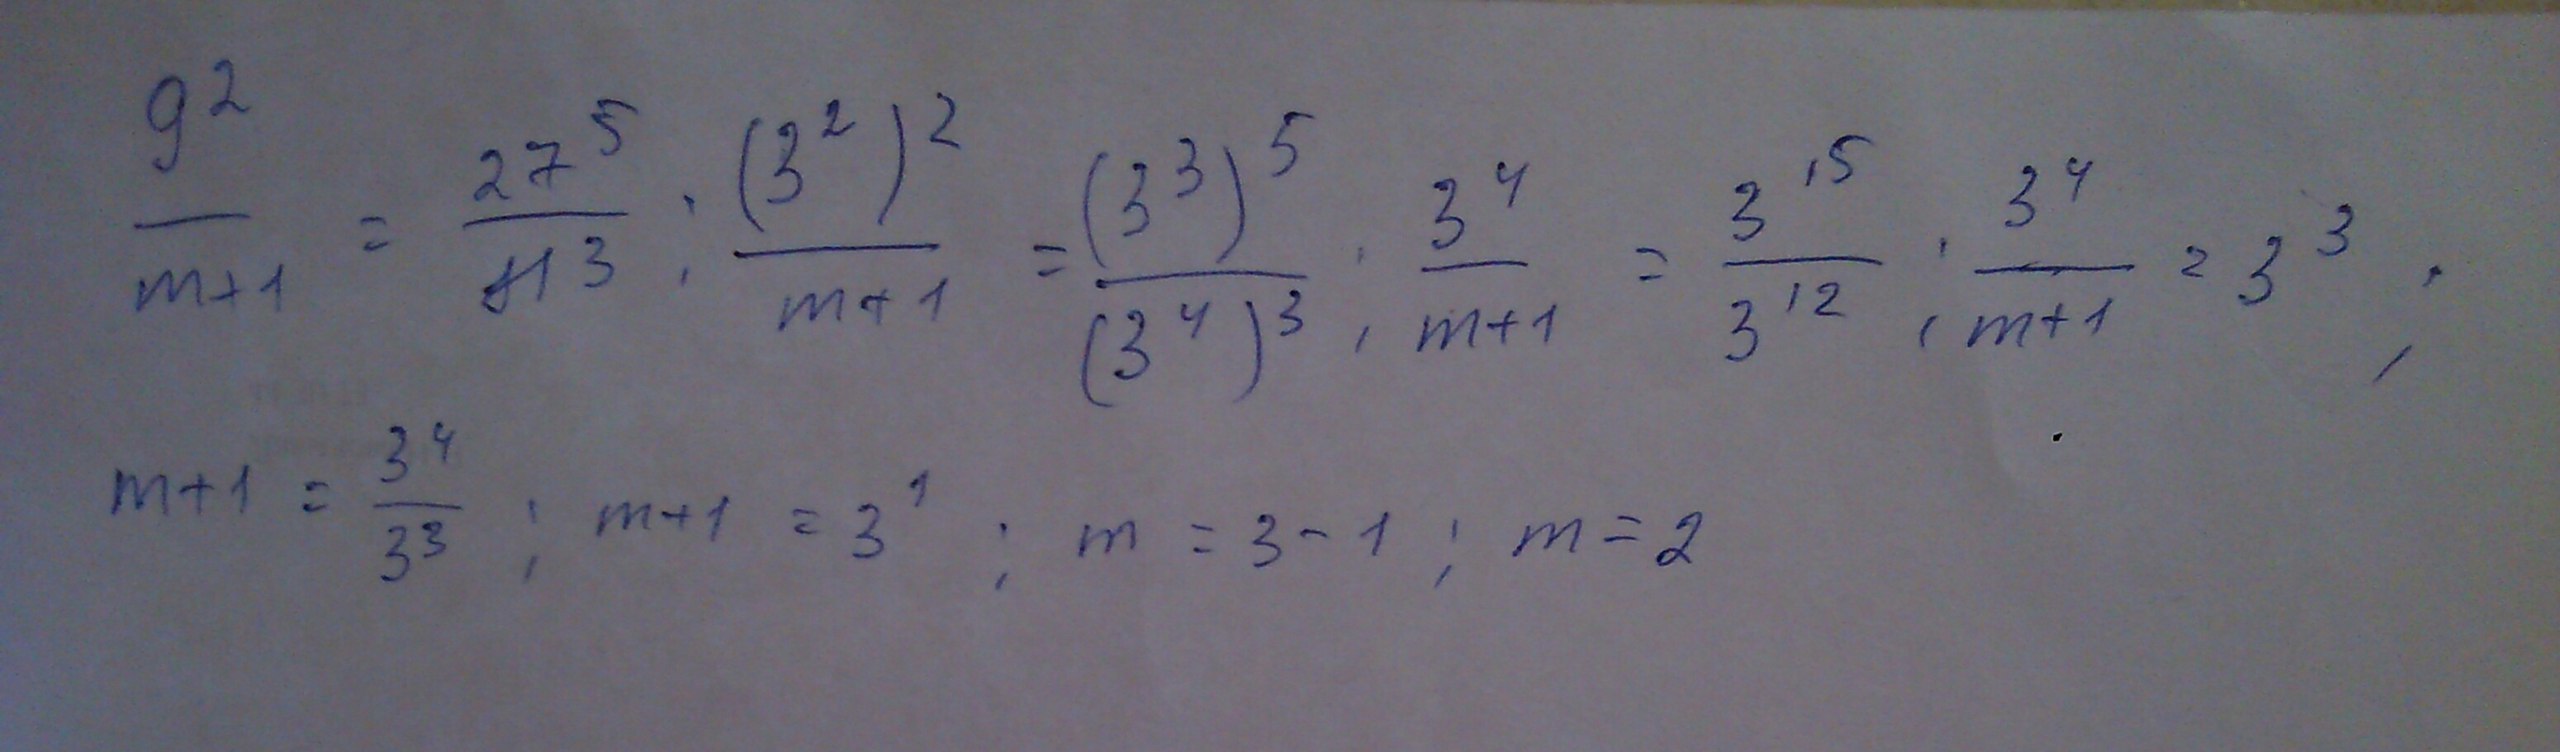 9² / (m+1) = 27⁵ / 81³ ; (3²)² / (m+1) = (3³)⁵ / (3⁴)³ ; 3⁴ / (m+1) = 3¹⁵ / 3¹² ; 3⁴ / (m+1) = 3³ ;
m+1 = 3⁴ / 3³ ; m+1 = 3¹ ; m = 3-1 ; m = 2